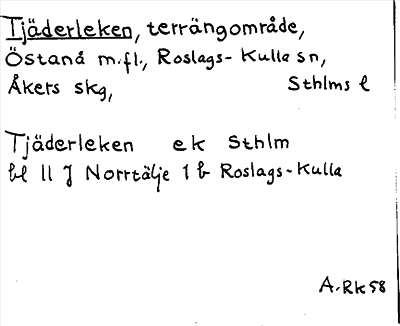 Tjäderleken, terrängområde,
Östanå m.fl., Roslags-Kulla sn,
Åkers skg, Sthlms l
Tjäderleken ek Sthlm
bl 11 J Norrtälje 1 b Roslags-Kulla
A.RK 58